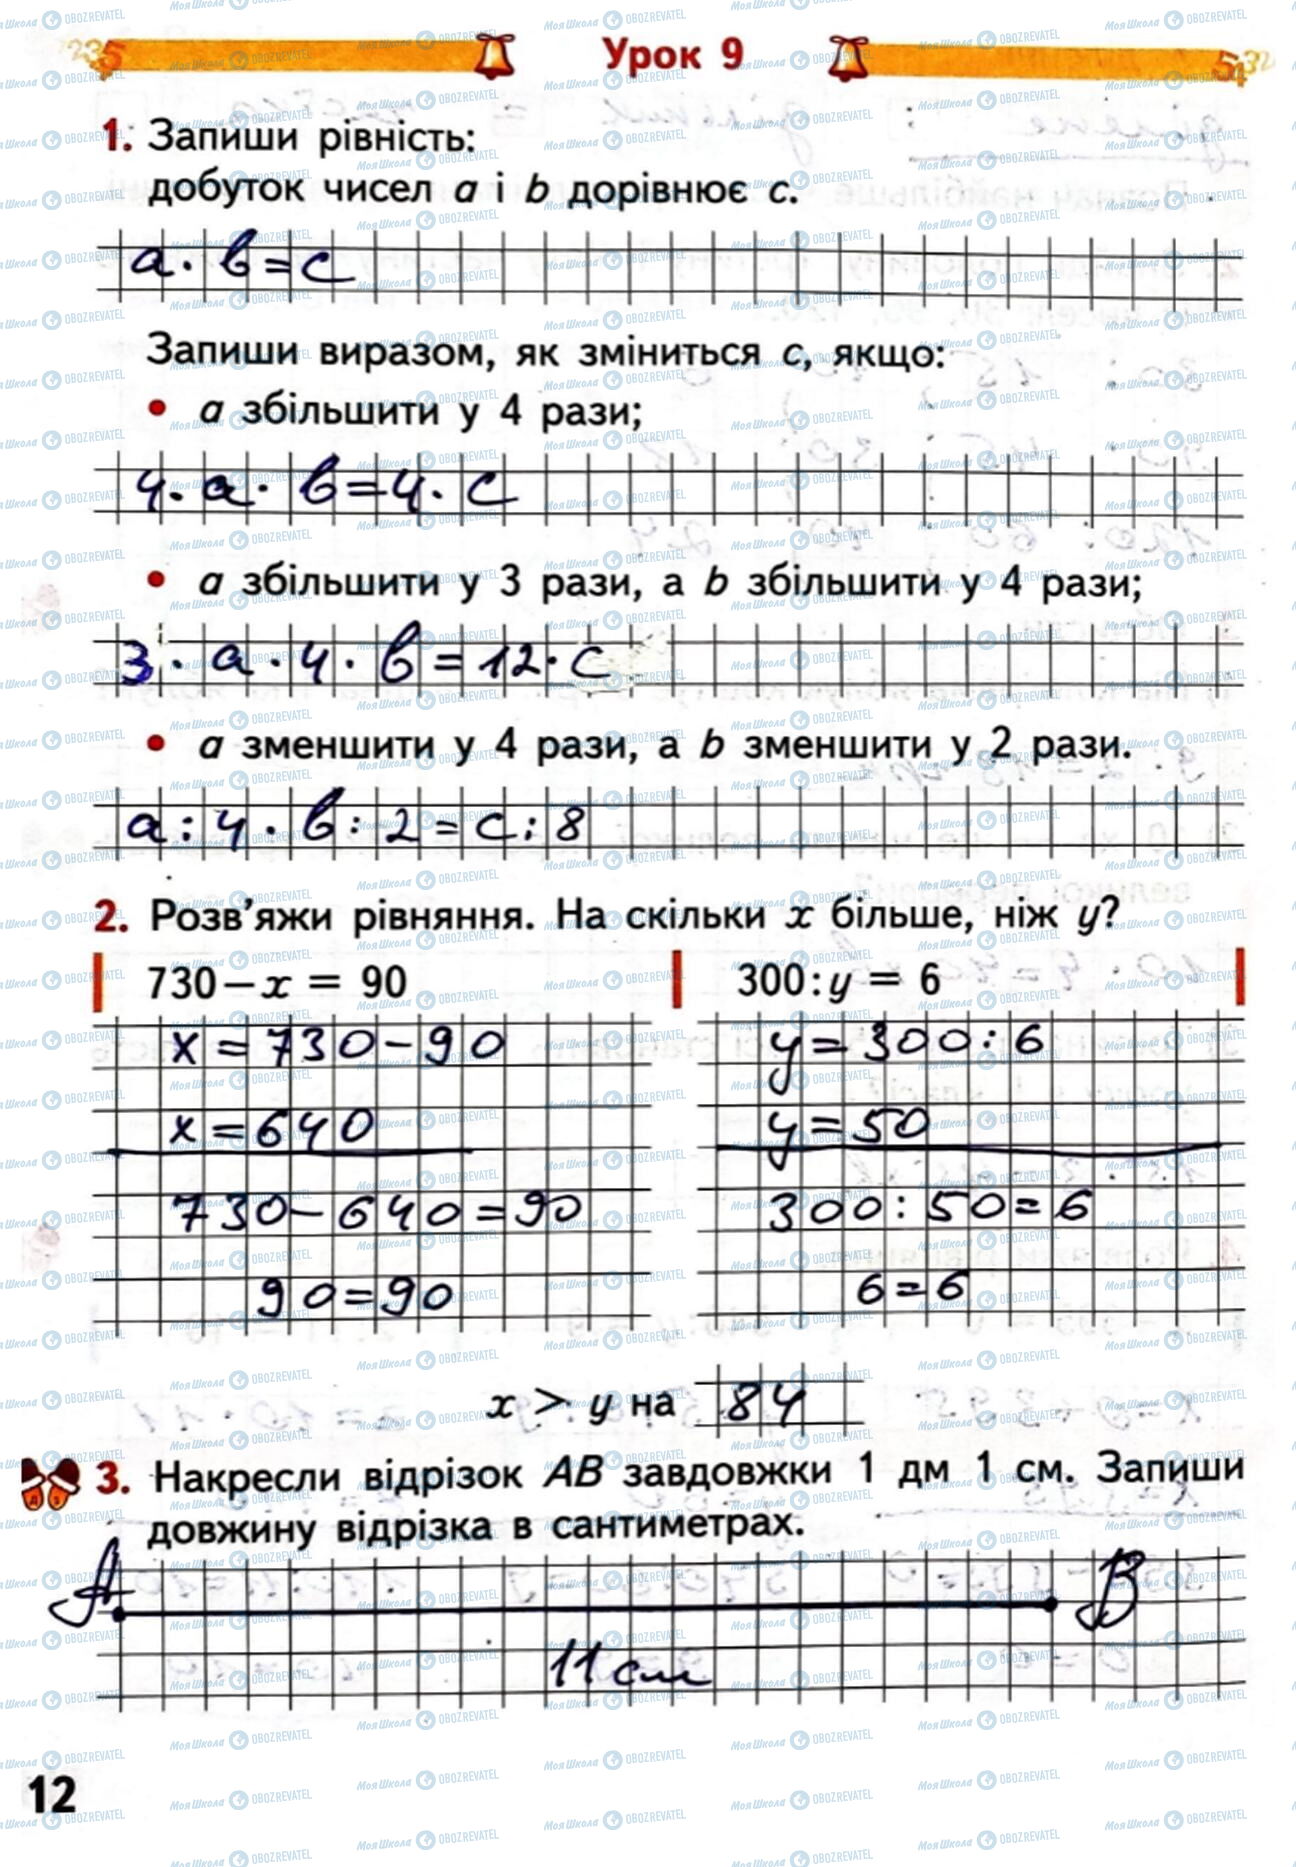 Урок 9
1. Запиши рівність:
добуток чисел a і b дорівнює c.
a · b = c
Запиши виразом, як зміниться c, якщо:
• a збільшити у 4 рази;
4 · a · b = 4 · c
• a збільшити у 3 рази, а b збільшити у 4 рази;
3 · a · 4 · b = 12 · c
• a зменшити у 4 рази, а b зменшити у 2 рази.
a : 4 · b : 2 = c : 8
2. Розв’яжи рівняння. На скільки x більше, ніж y?
730 – x = 90
300 : y = 6
x = 730 – 90
y = 300 : 6
x = 640
y = 50
730 – 640 = 90
300 : 50 = 6
90 = 90
6 = 6
x > y на 84
3. Накресли відрізок AB завдовжки 1 дм 1 см. Запиши
довжину відрізка в сантиметрах.
A B
11 см
12
МояШкола OBOZREVATEL